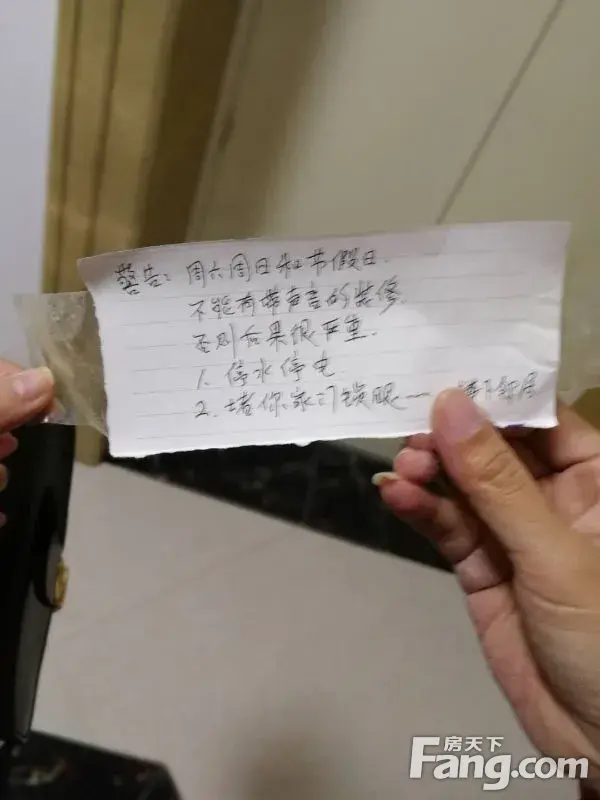 警告：周六周日和节假日.
不能有带声音的装修.
否则后果很严重.
1. 停水停电
2. 堵你家门锁眼一一 楼下邻居
房天下
Fang.com